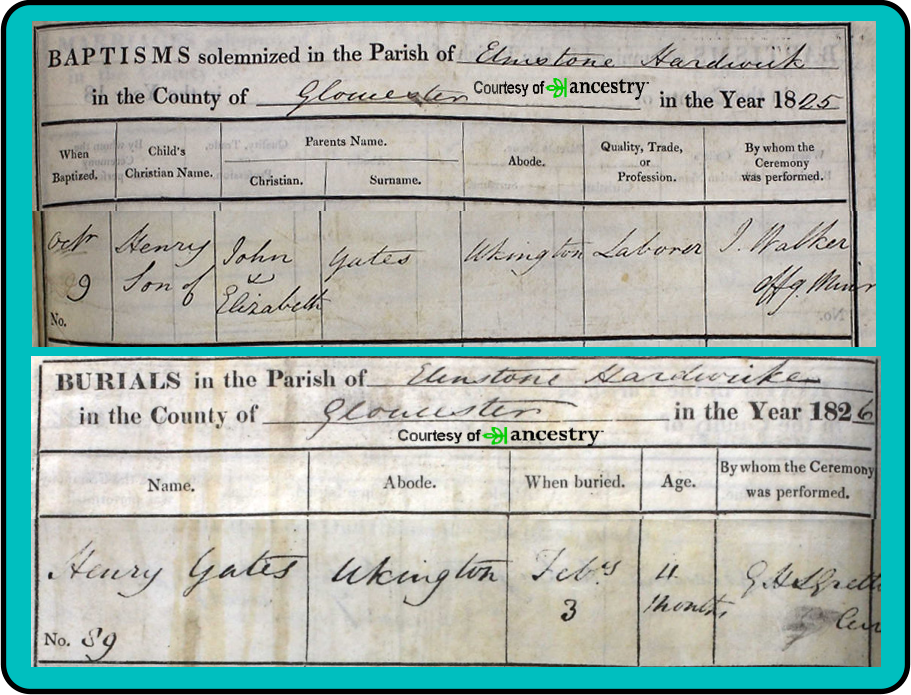 BAPTISMS solemnized in the Parish of Elmstone Hardwick
in the County of Gloucester Courtesy of ancestry in the Year 1825
When Baptized. Child's Christian Name. Parents Name. Christian. Surname. Abode. Quality, Trade, or Profession. By whom the Ceremony was performed.
Octr Henry John Yates Ukington Laborer J. Walker
9 Son of & Elizabeth offg. Minr
No.
BURIALS in the Parish of Elmstone Hardwicke
in the County of Gloucester in the Year 1826
Courtesy of ancestry
Name. Abode. When buried. Age. By whom the Ceremony was performed.
Henry Yates Ukington Feby 4
3 Months
No. 89